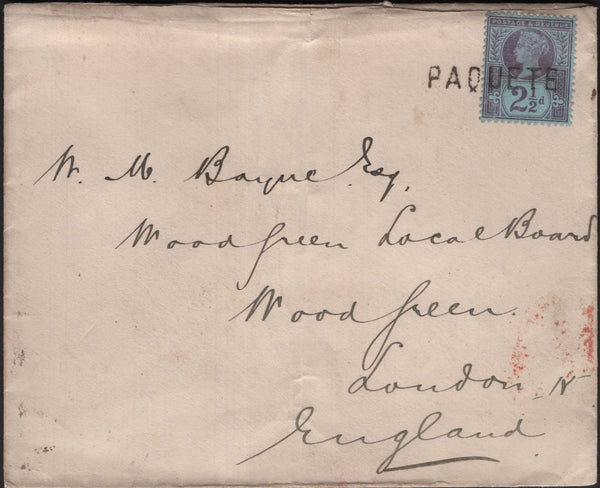 POSTAGE & REVENUE
PAQUETE
2½d
W. M. Bayne Esq,
Wood Green Local Board
Wood Green.
London, N
England